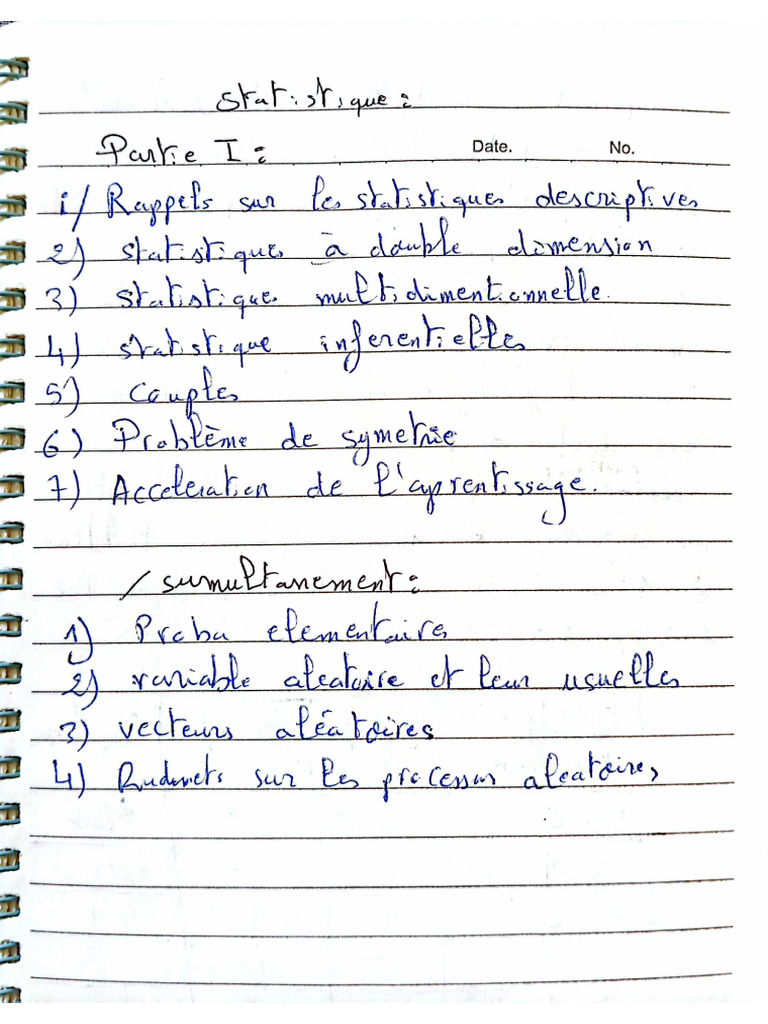 Statistique:
Partie I: Date. No.
1/ Rappels sur les statistiques descriptives
2) statistiques à double dimension
3) statistique multidimentionnelle.
4) statistique inferentielles
5) Couples
6) Problème de symetrie
7) Acceleration de l'aprentissage.
/ sumultanement:
1) Proba elementaire
2) variable aleatoire et leur usuelles
3) vecteurs aléatoires
4) sur les processus aleatoires